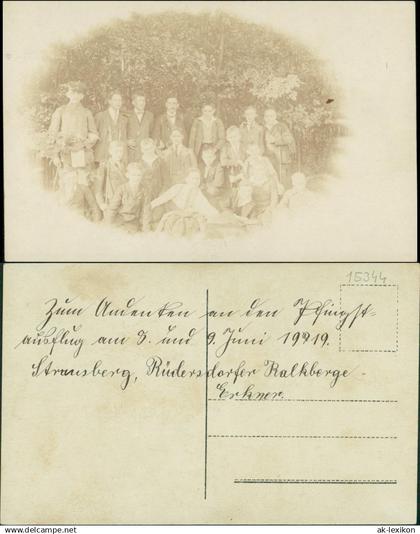 15344
Zum Andenken an den Pfingst-
ausflug am 8. und 9. Juni 1919.
Strausberg, Rüdersdorfer Kalkberge -
Erkner.
www.ak-lexikon.de
ak-lexikon